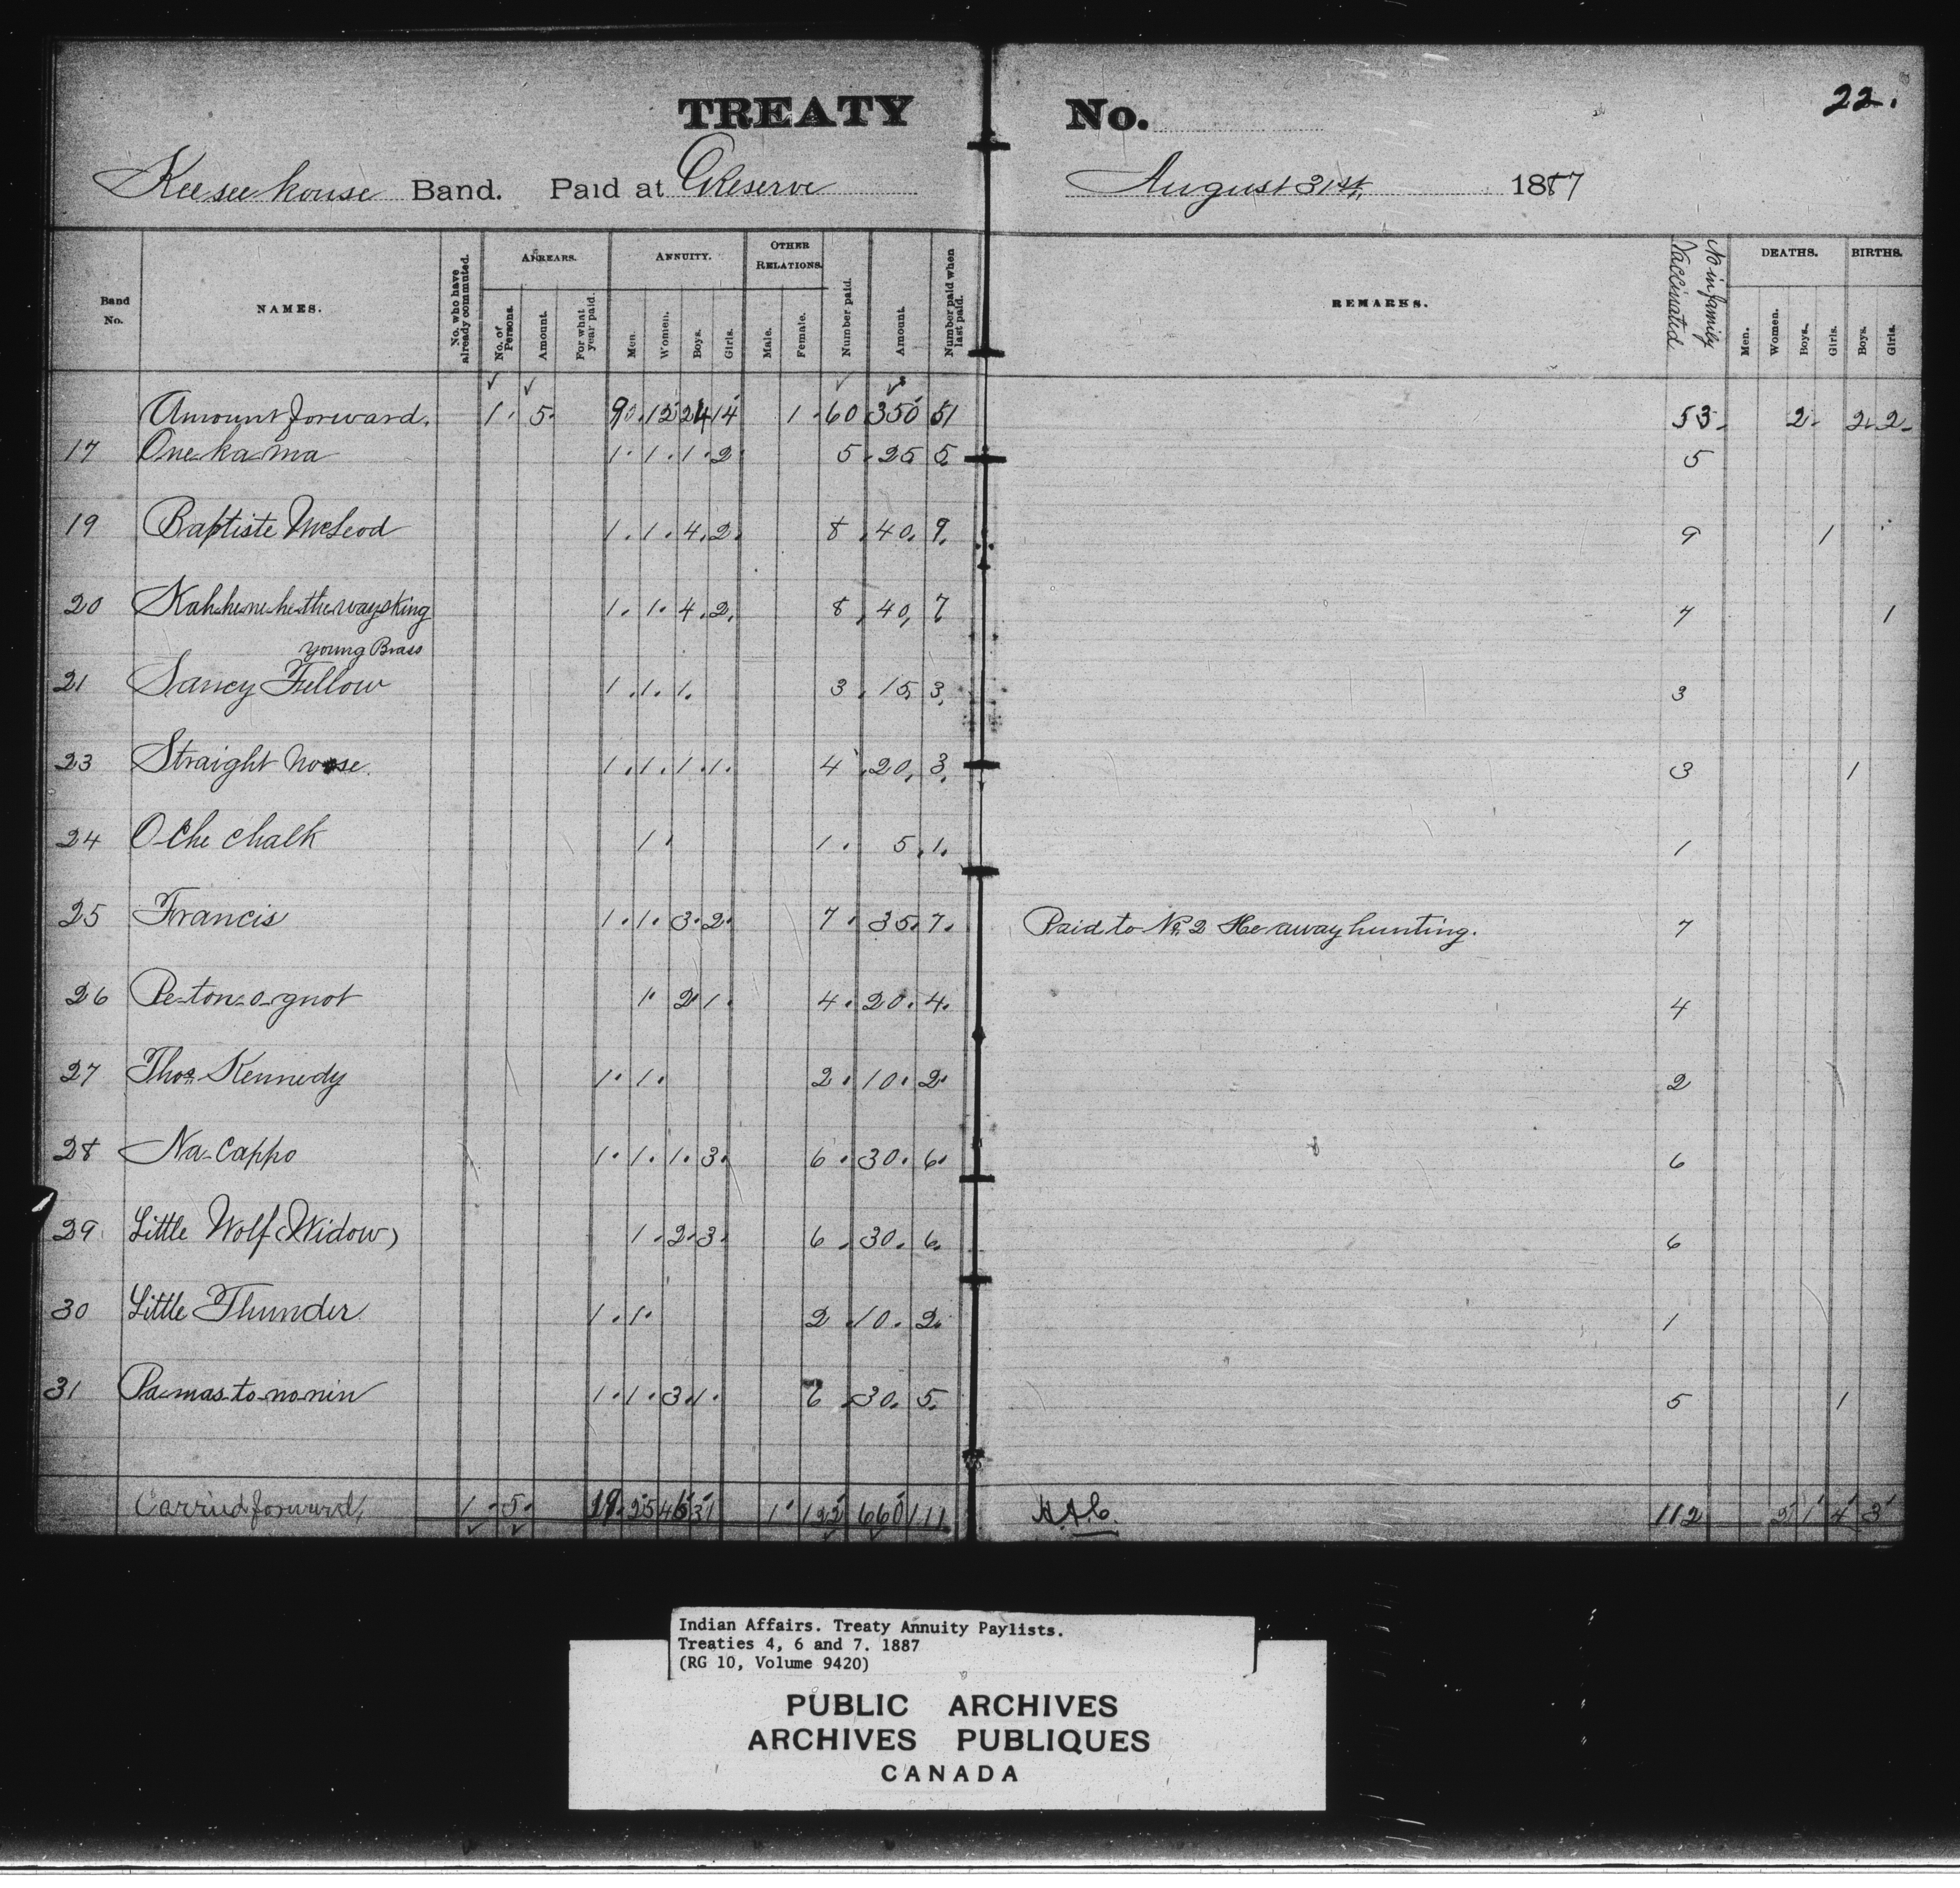 22.
TREATY No.
Keesee kouse Band. Paid at Reserve August 31st, 1887
Band No. NAMES. No. who have already commuted. ARREARS. No. of Persons. Amount. For what year paid. ANNUITY. Men. Women. Boys. Girls. OTHER RELATIONS. Male. Female. Number paid. Amount. Number paid when last paid. REMARKS. No in family Vaccinated DEATHS. Men. Women. Boys. Girls. BIRTHS. Boys. Girls.
Amount forward. 1. 5. 9 12 24 14 1. 60 350 51 53. 2. 2. 2.
17 One-ka-ma 1. 1. 1. 2. 5. 25 5. 5
19 Baptiste McLeod 1. 1. 4. 2. 8. 40. 9. 9 1
20 Kah-he-ne-he-the-ways-king 1. 1. 4. 2. 8. 40, 7 7 1
young Brass
21 Saucy Fellow 1. 1. 1. 3. 15, 3. 3
23 Straight nose. 1. 1. 1. 1. 4 20, 3. 3 1
24 O-Che chalk 1. 1. 5. 1. 1
25 Francis 1. 1. 3. 2. 7. 35. 7. Paid to No 2 He away hunting. 7
26 Pe-ton-o-quot 1. 2 1. 4. 20. 4. 4
27 Thos Kennedy 1. 1. 2. 10. 2. 2
28 Na-Cappo 1. 1. 1. 3. 6. 30. 6. 6
29. Little Wolf (Widow) 1. 2. 3. 6. 30. 6. 6
30 Little Thunder 1. 1. 2. 10. 2. 1
31 Pa-mas-to-no-nin 1. 1. 3. 1. 6. 30. 5. 5 1
Carried forward, 1. 5. 19. 25 46 31 1 122 660 111 H.A.C. 112 2 1 4 3
Indian Affairs. Treaty Annuity Paylists.
Treaties 4, 6 and 7. 1887
(RG 10, Volume 9420)
PUBLIC ARCHIVES
ARCHIVES PUBLIQUES
CANADA